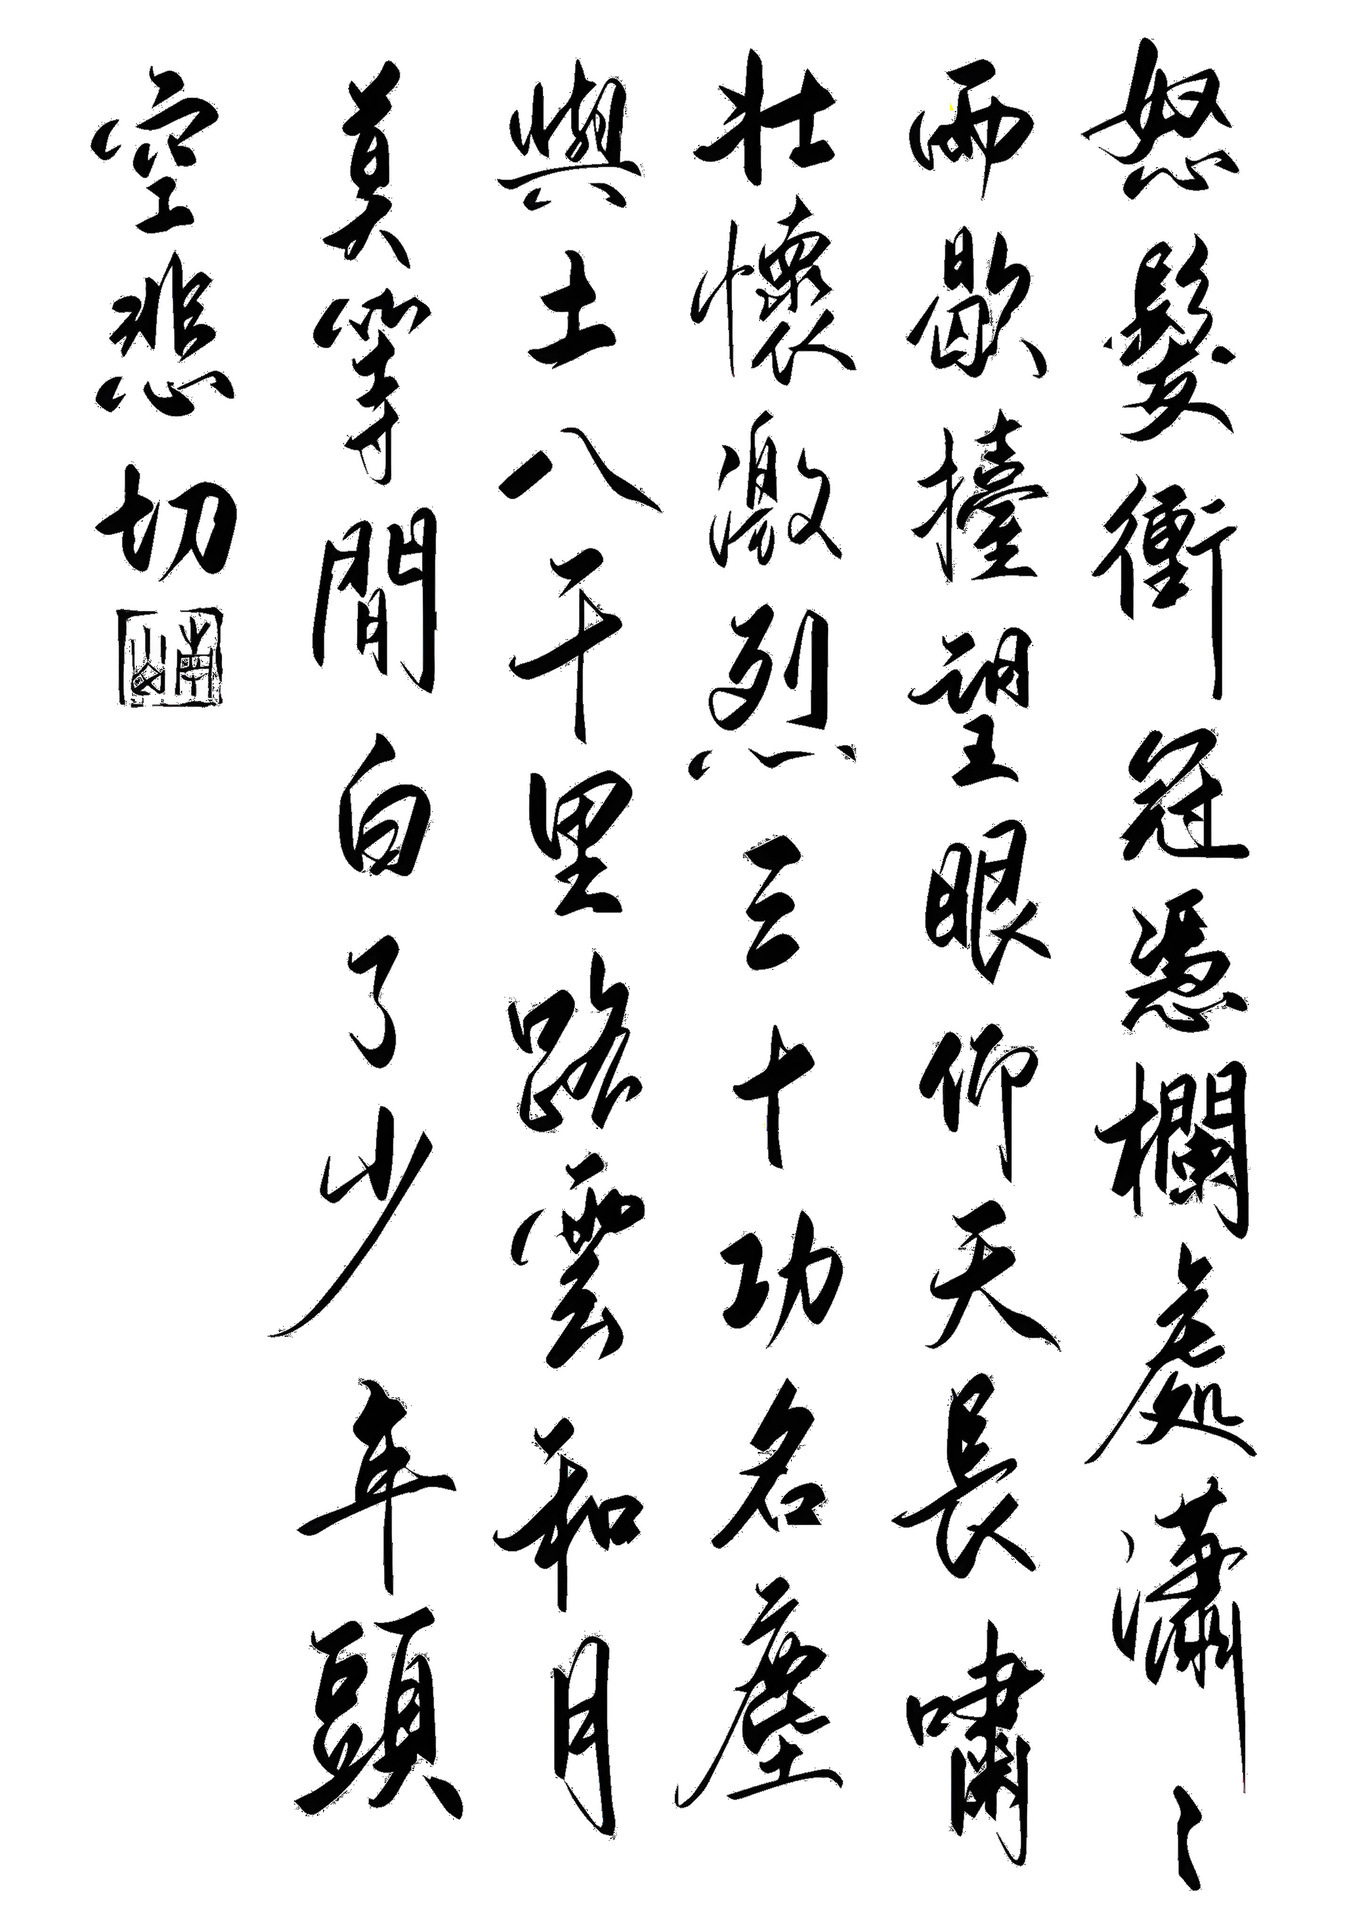 怒髮衝冠憑欄處瀟〻
雨歇擡望眼仰天長嘯
壯懷激烈三十功名塵
與土八千里路雲和月
莫等閒白了少年頭
空悲切